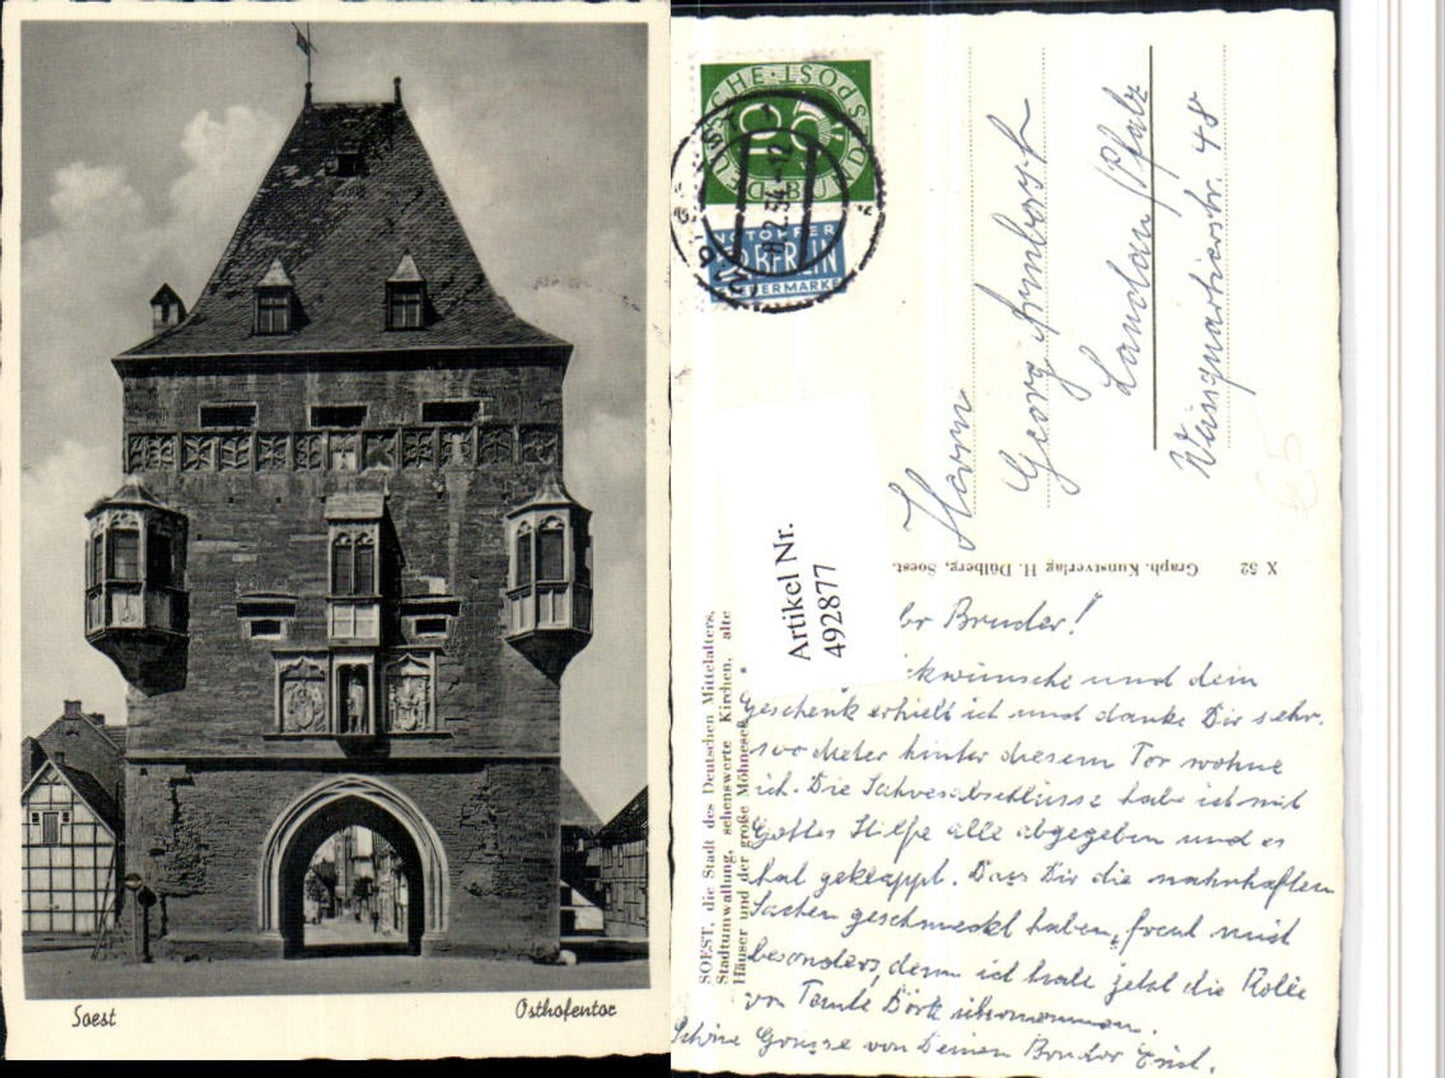 Soest
Osthofentor
DEUTSCHE · BUNDESPOST
NOTOPFER
2 BERLIN
STEUERMARKE
-8.2.54.-12
Herrn
Georg Armborst
Landau/Pfalz
Weissquartierstr. 48
€5
Artikel Nr.
492877
Graph. Kunstverlag H. Dülberg, Soest.
X 52
SOEST, die Stadt des Deutschen Mittelalters,
Stadtumwallung, sehenswerte Kirchen, alte
Häuser und der große Möhnesee.
Bruder!
und dein
Geschenk erhielt ich und danke Dir sehr.
hinter diesem Tor wohne
ich. Die habe ich mit
Gottes Hilfe alle abgegeben und es
hat geklappt. Dass Dir die nahrhaften
Sachen geschmeckt haben, freut mich
besonders, denn ich habe jetzt die Rolle
von Tante übernommen.
Schöne Grüsse von Deinem Bruder